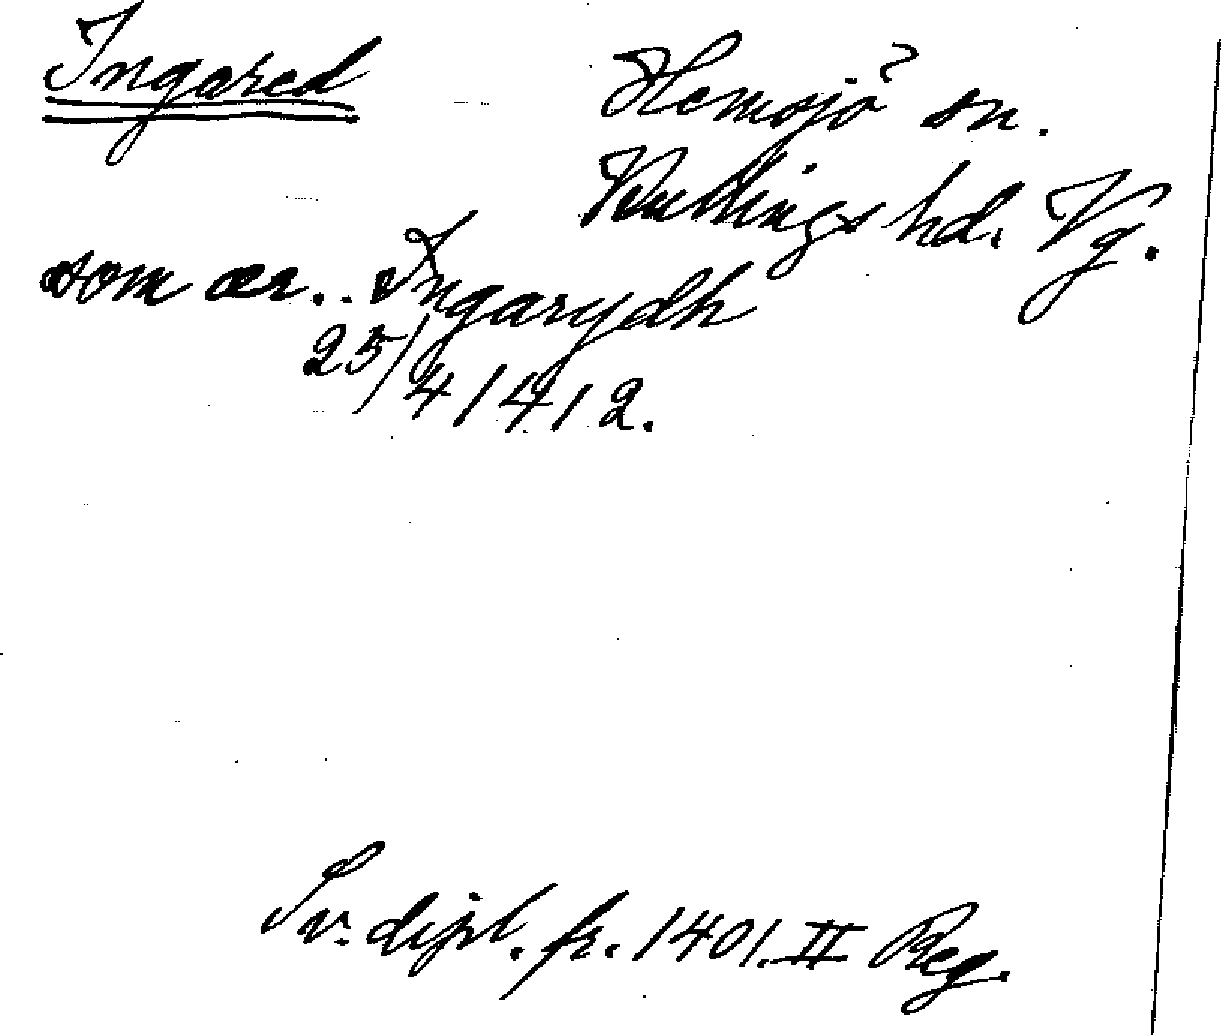 Ingared
Hemsjö sn.
Kullings hd. Vg.
som ær.. Ingarydh
25/4 1412.
Sv. dipl. fr. 1401. II Reg.